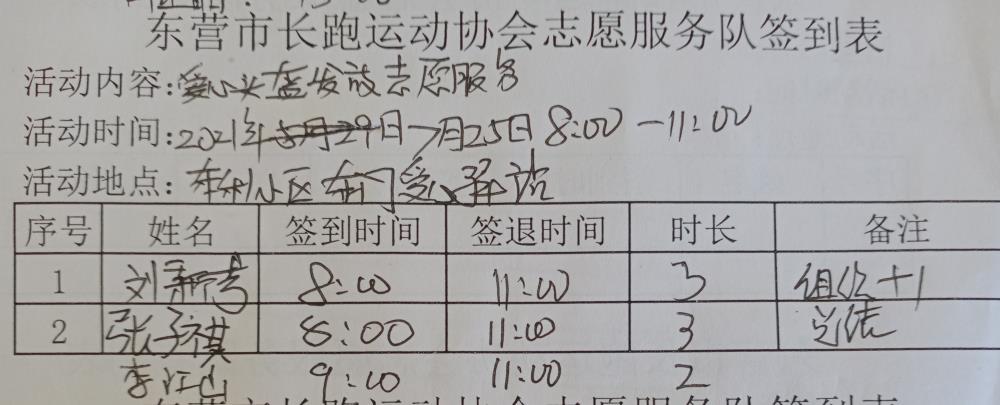 东营市长跑运动协会志愿服务队签到表
活动内容:爱心头盔发放志愿服务
活动时间:2021年5月29日7月25日 8:00-11:00
活动地点:小区东门爱心驿站
序号 姓名 签到时间 签退时间 时长 备注
1 刘 8:00 11:00 3 组织+1
2 张子祺 8:00 11:00 3 总结
李江山 9:00 11:00 2
东营市长跑运动协会志愿服务队签到表